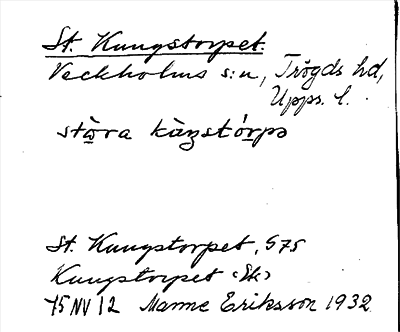 St. Kungstorpet.
Veckholms s:n, Trögds hd,
Upps. l.
stȧ̀ra kàŋstórpə
St. Kungstorpet, S75
Kungstorpet (Ek)
75 NV 12 Manne Eriksson 1932